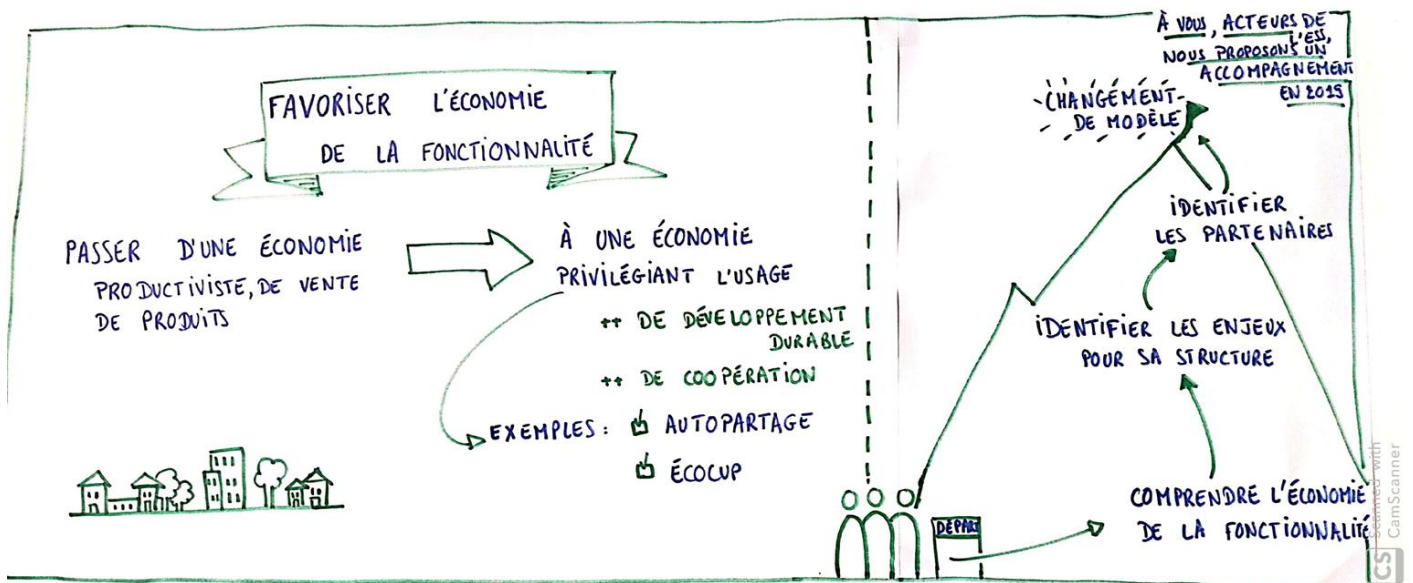 FAVORISER L'ÉCONOMIE
DE LA FONCTIONNALITÉ
PASSER D'UNE ÉCONOMIE
PRODUCTIVISTE, DE VENTE
DE PRODUITS
À UNE ÉCONOMIE
PRIVILÉGIANT L'USAGE
++ DE DÉVELOPPEMENT
DURABLE
++ DE COOPÉRATION
EXEMPLES : AUTOPARTAGE
ÉCOCUP
À VOUS, ACTEURS DE
L'ESS,
NOUS PROPOSONS UN
ACCOMPAGNEMENT
EN 2019
CHANGÉMENT
DE MODÈLE
IDENTIFIER
LES PARTENAIRES
IDENTIFIER LES ENJEUX
POUR SA STRUCTURE
COMPRENDRE L'ÉCONOMIE
DE LA FONCTIONNALITÉ
DÉPART
CS Scanned with
CamScanner